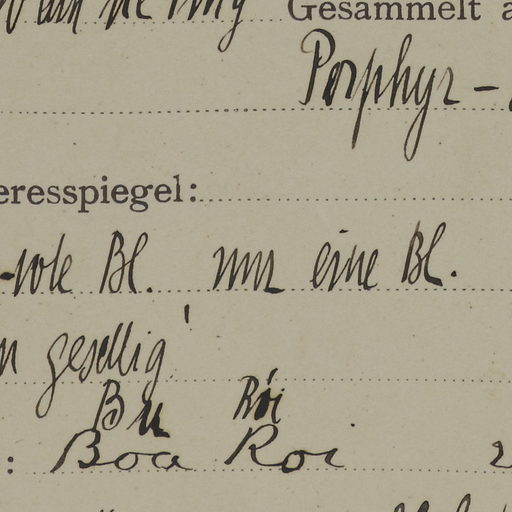 Gesammelt a
Porphyr –
eresspiegel:
-rote Bl. nur eine Bl.
n gesellig'
Bu Rói
: Boa Roi